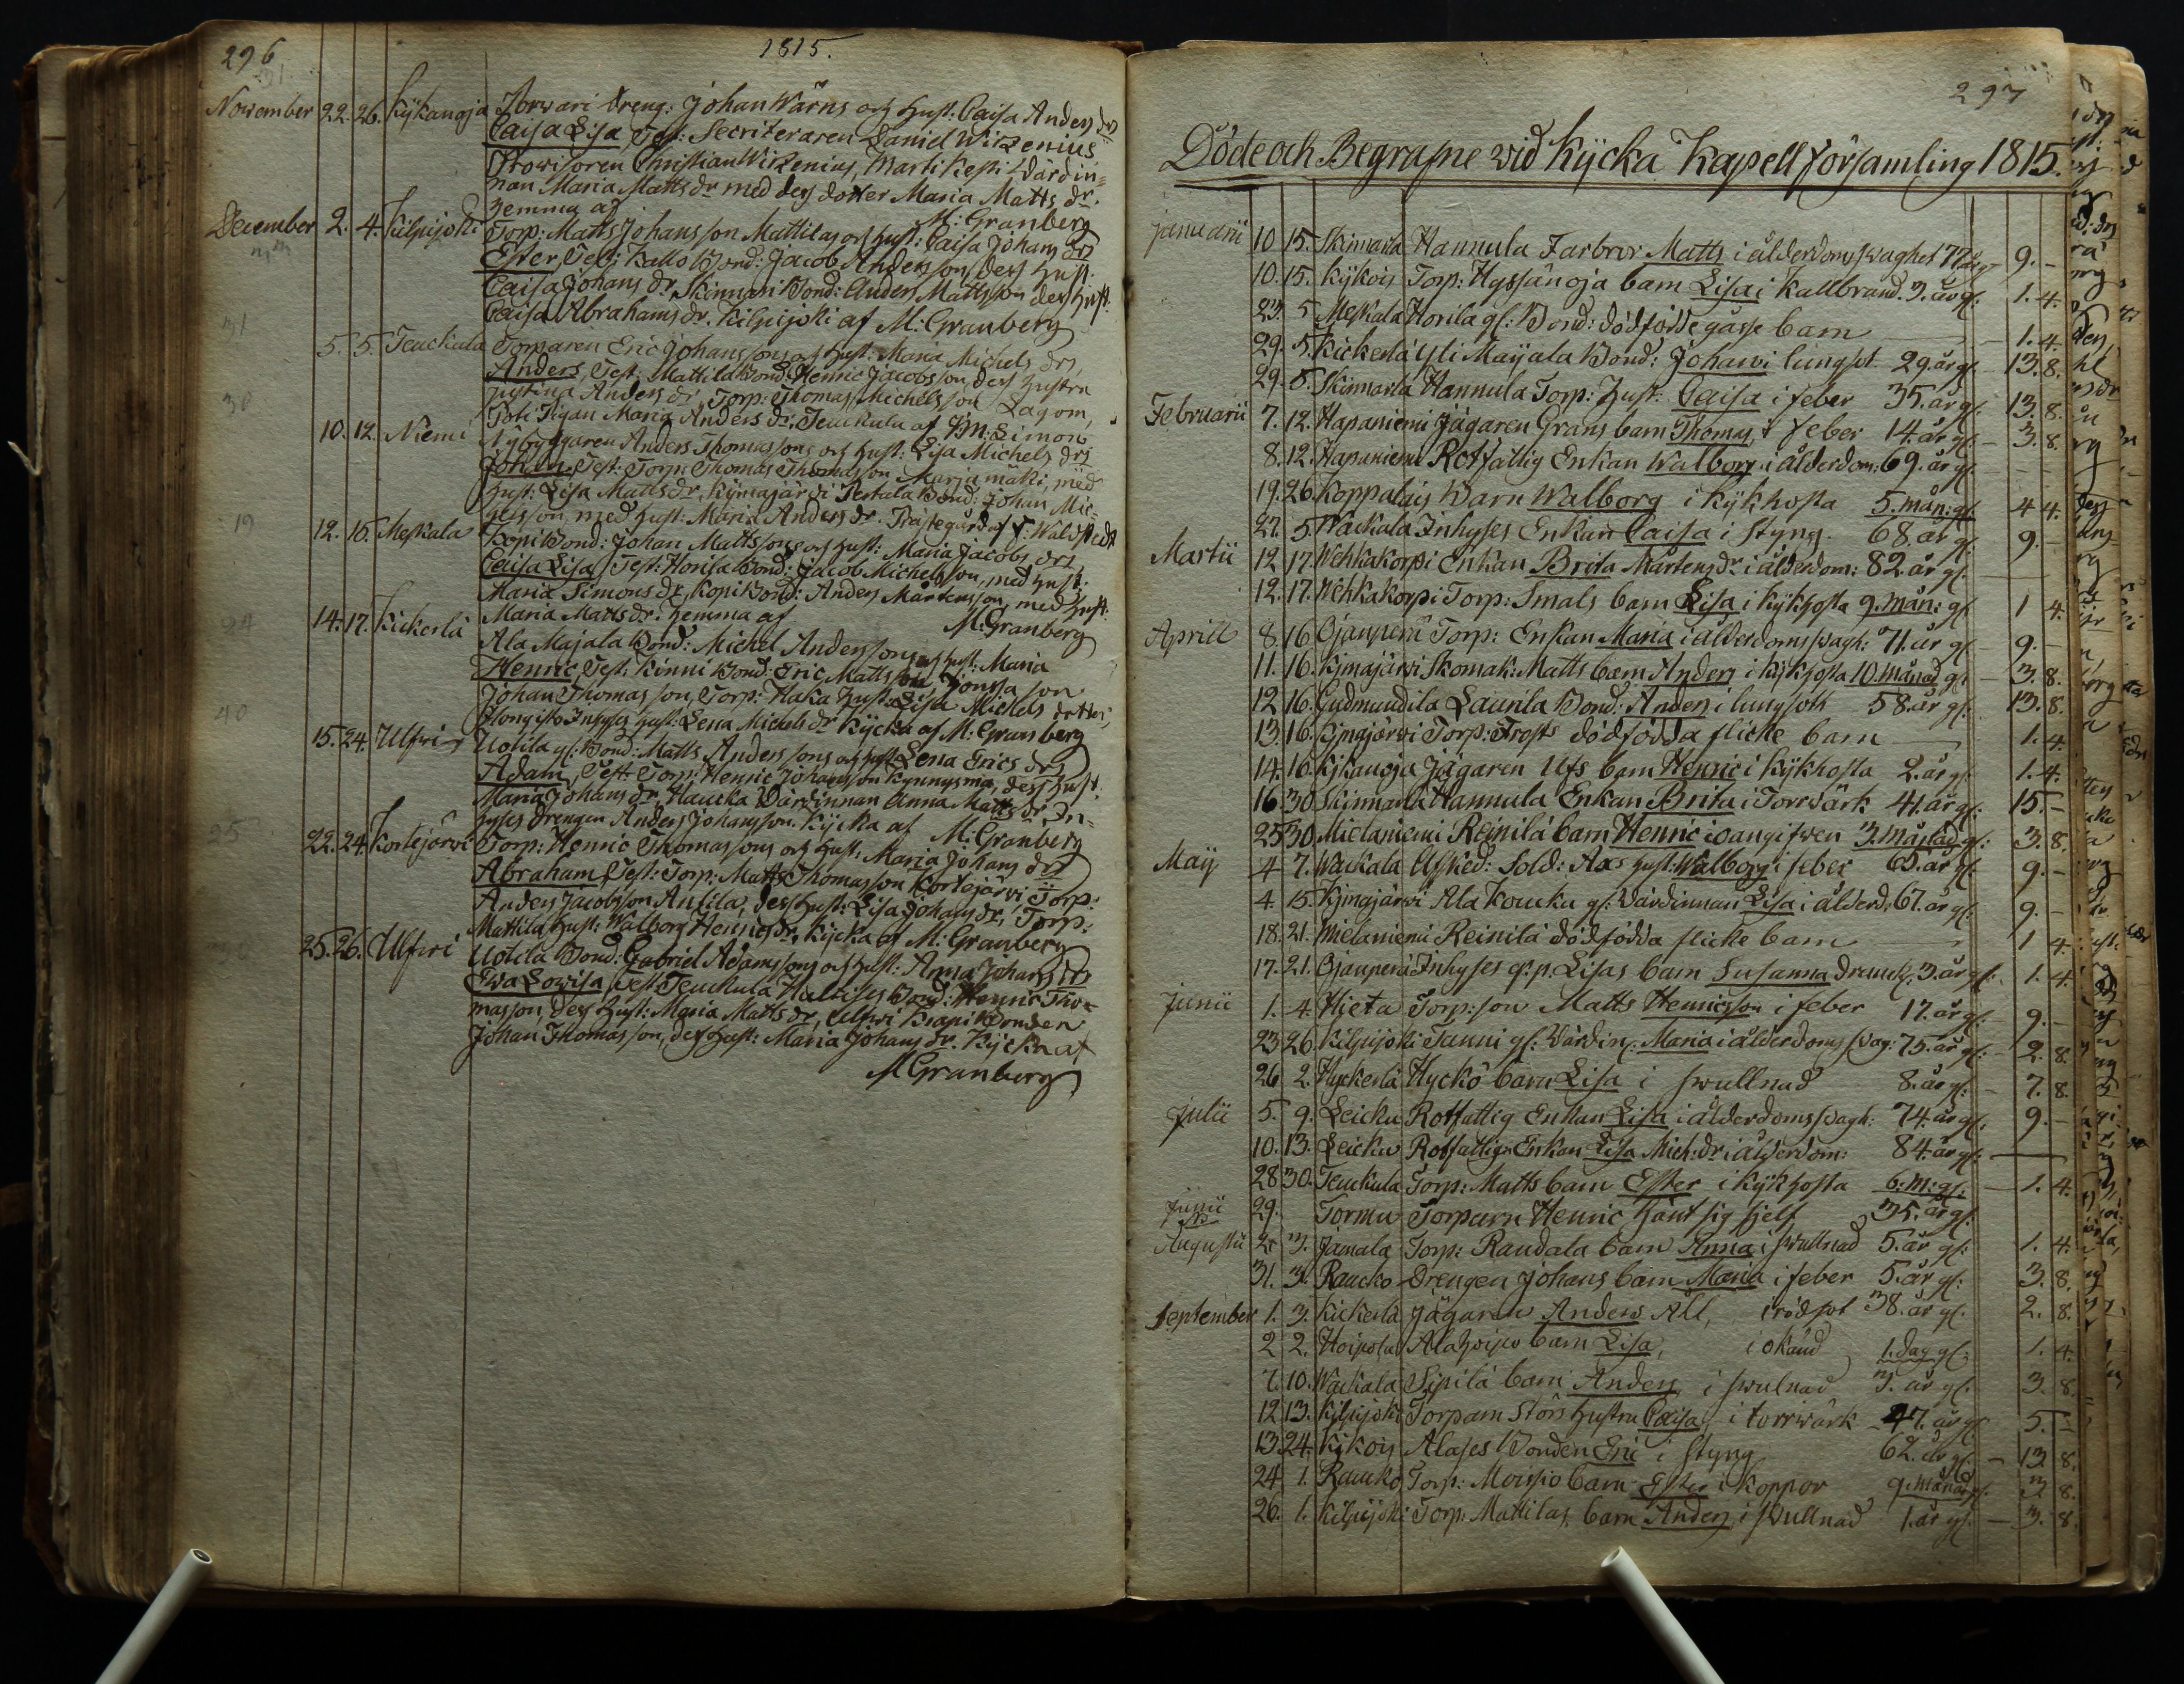 296
1815.
November 22. 26. Kykanoja Torwari dreng: Johan Wärns och hust: Caisa Anders drs
Caisa Lisa, Test: Secriteraren Daniel Wirzenius
Prowisoren Christian Wirzenius, Marti Kesti Wärdin=
nan Maria Matts dr med dess dotter Maria Matts dr.
hemma af M: Granberg
December 2. 4. Kilpijoki Torp: Matts Johansson Mattilas och hust: Caisa Johans drs
Ester, Test: Kallo Bond: Jacob Andersson, dess hust:
Caisa Johans dr, Skinnari Bond: Anders Mattsson dess hust
Caisa Abrahams dr. Kilpijoki af M: Granberg
31
5. 5. Teuckula Torparen Eric Johanssons och hust: Maria Michels drs,
Anders, Test: Mattila Bond: Henric Jacobsson, dess hustru
Justina Anders dr, Torp: Thomas Michelsson Lagom,
Maria Anders dr, Teuckula af Hn: Simon
30
10. 12. Niemi Nybyggaren Anders Thomassons och hust: Lisa Michels drs
Johan. Test: Torp: Thomas Thomasson Marjamäki, med
hust: Lisa Matts dr, Kymäjärvi Pertala Bond: Johan Mic=
helsson, med hust: Maria Anders dr. Prästegård af F: Waldstedt
19
12. 16. Meskala Kopi Bond: Johan Mattssons och hust: Maria Jacobs drs,
Caisa Lisa, Test: Honila Bond: Jacob Michelsson, med hust:
Maria Simons dr, Kopi Bond: Anders Mårtensson, med hust
Maria Matts dr: hemma af M: Granberg
24
14. 17. Kickerlä Ala Majala Bond: Michel Anderssons och hust: Maria
Henric, Test: Kinni Bond: Eric Mattsson
Johan Thomasson, Torp: Haka hust: Lisa Michels dotter,
Inhyses hust: Lena Michels dr Kycka af M: Granberg
40
15. 24. Ulfwi Uotila gl: Bond: Matts Anderssons och hust: Lena Erics drs
Adam, Test: Torp: Henric Johansson Kynnysmä, dess hust:
Maria Johans dr, Haucka Wärdinnan Anna Matts dr, In=
hyses drengen Anders Johansson. Kycka af M: Granberg
25
22. 24. Kortejärwi Torp: Henric Thomassons och hust: Maria Johans drs
Abraham, Test: Torp: Matts Thomasson Kortejärvi, Torp:
Anders Jacobsson Antila, dess hust: Lisa Johans dr, Torp:
Mattila hust: Walborg Henrics dr, Kycka af M: Granberg
25. 26. Ulfwi Uotila Bond: Gabriel Adamssons och hust: Anna Johans drs
Ewa Lowisa, Test: Teuckula Bond: Henric Tho=
masson, dess hust: Maria Matts dr, Ulfwi Krapi Bonden
Johan Thomasson, dess hust: Maria Johans dr. Kycka af
M Granberg
297
Döde och Begrafne wid Kycka Kapell församling 1815.
Januarii 10 15. Skinnarla Hannula Farbror Matts i ålderdoms swaghet 77 år gl 9. -
10. 15. Kykois Torp: Hyssänoja barn Lisa i Kallbrand. 3. år gl. 1. 4.
23. 5 Meskala Honila gl: Bond: dödfödde gåsse barn 1. 4.
29. 5. Kickerlä Yli Mayala Bond: Johan i lungsot 29. år gl 13. 8.
29. 5. Skinnarla Hannula Torp: hust: Caisa i feber 35. år gl. 13. 8.
Februarii 7. 12. Hapaniemi Jägaren Grans barn Thomas, i feber 14. år gl. 3. 8.
8. 12. Hapaniemi Rotfattig Enkan Walborg i ålderdom: 69. år gl
19. 26. Koppalais Barn Walborg i kykhosta 5. mån: gl 4 4.
27. 5. Wackala Inhyses Enkan Caisa i styng. 68. år gl. 9. -
Martii 12 17. Wehkakorpi Enkan Brita Mårtens dr i ålderdom: 82. år gl.
12. 17. Wehkakorpi Torp: Smals barn Lisa i kykhosta 9. mån: gl 1 4.
Aprill 8. 16 Ojanperä Torp: Enkan Maria i ålderdoms swagh: 71. år gl. 9. -
11. 16. Kymäjärwi Skomak: Matts barn Anders i kykhosta 10. månad gl. 3. 8.
12 16. Gudmundila Launla Bond: Anders i lungsoth 58. år gl. 13. 8.
13. 16. Kymäjärwi Torp: Frosts dödfödda flicke barn 1. 4.
14. 16. Kykanoja Jägaren Ufs barn Henric i kykhosta 2. år gl. 1. 4.
16 30. Skinnarla Hannula Enkan Brita i Torrwärk 41. år gl: 15. -
25 30. Mielaniemi Reinilä barn Henric i oangifwen 3. månad gl: 3. 8.
Maÿ 4 7. Wackala Afsked: Sold: Aas hust: Walborg i feber 65. år gl. 9. -
4. 15. Kymäjärwi Ala Koucku gl: Wärdinnan Lisa i ålderd: 67. år gl: 9. -
18. 21. Mielaniemi Reinilä dödfödda flicke barn 1 4.
17. 21. Ojanperä Inhyses q: p. Lisas barn Susanna drunk: 3. år gl: 1. 4.
Junii 1. 4. Hieta Torp: son Matts Henricsson i feber 17. år gl. 9. -
23 26. Kilpijoki Tanni gl: Wärdin: Maria i ålderdoms swag: 75. år gl: 2. 8.
26 2. Hyckerlä Hyckö barn Lisa i swullnad 8. år gl. 7. 8.
Julii 5. 9. Leicku Rotfattig Enkan Lisa i ålderdoms swagh: 74. år gl: 9. -
10. 13. Leicku Rotfattige Enkan Lisa Mich: dr i ålderdom: 84. år gl:
28 30. Teuckula Torp: Matts barn Ester i kykhosta 6. m: gl: 1. 4.
Junii NB 29. Tormu Torparen Henric hänt sig sjelf 35. år gl.
Augusti 2. 3. Jamala Torp: Raudala barn Anna i swullnad 5. år gl: 1. 4.
31. 31. Raucko Drengen Johans barn Maria i feber 5. år gl: 3. 8.
September 1. 3. Kickerlä Jägaren Anders All, i rödsot 38. år gl. 2. 8.
2 2. Hoipola Alahoipo barn Lisa, i okänd 1. dag gl: 1. 4.
7. 10. Wackala Sipilä barn Anders, i swulnad 3. år gl. 3. 8.
12 13. Kilpijoki Torparn Störs hustru Caisa, i torrwärk 47. år gl 5. -
13 24. Kykois Alases Bonden Eric i styng 62. år gl. 13 8.
24 1. Raucko Torp: Moisio barn Ester i koppor 9. månad gl. 3 8.
26. 1. Kilpijoki Torp: Mattilas barn Anders i swullnad 1. år gl. 3. 8.